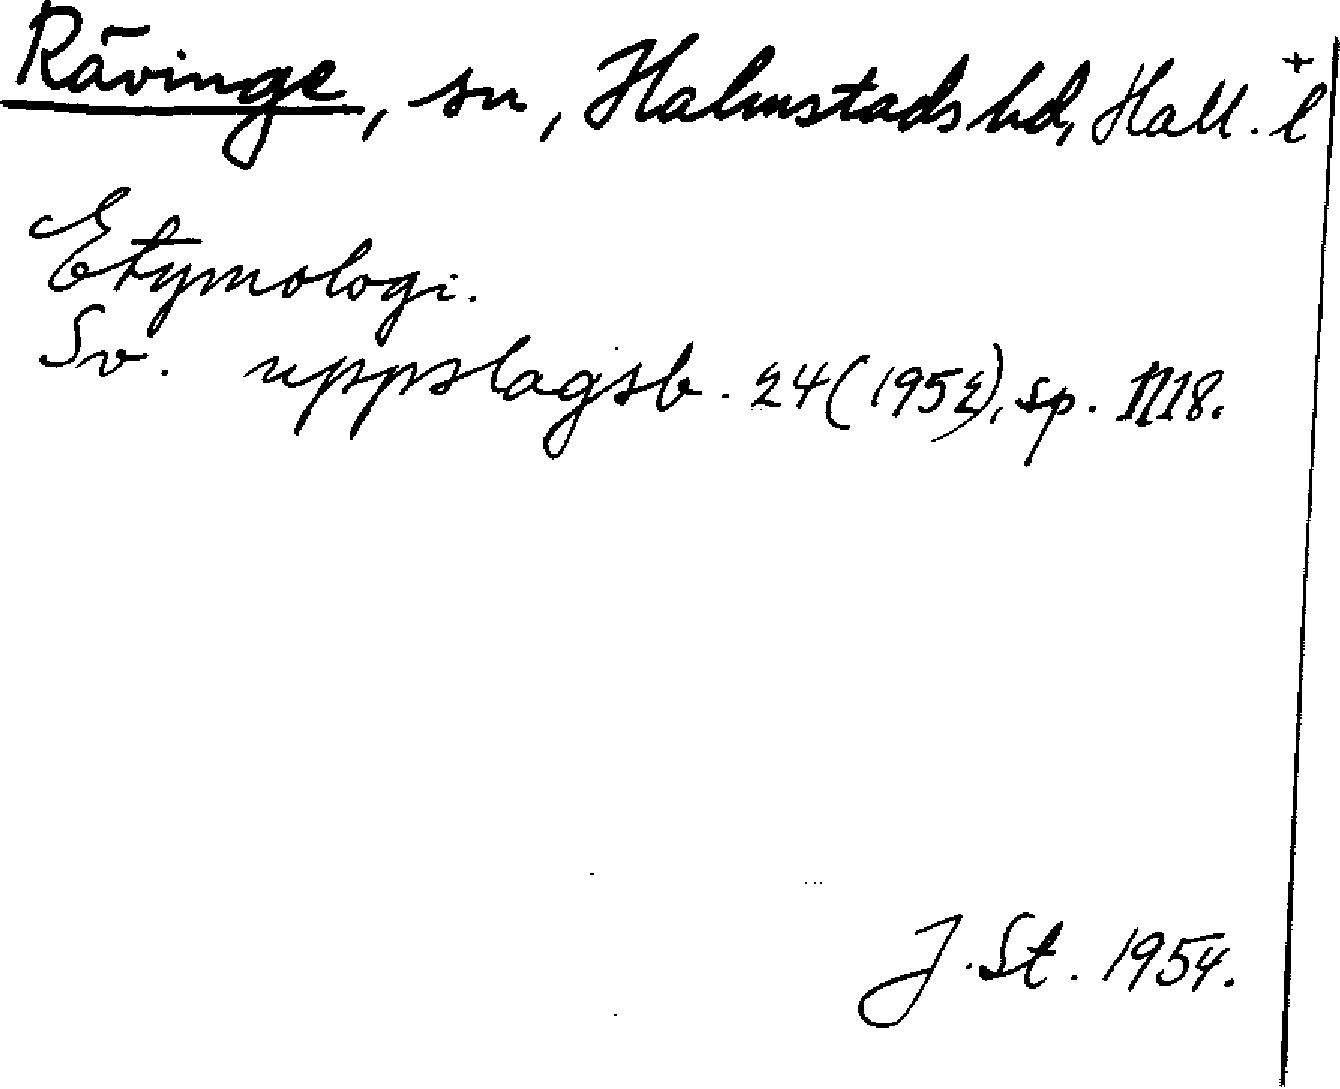 Rävinge, sn, Halmstads hd, Hall. l +
Etymologi.
Sv. uppslagsb. 24 (1952), sp. 1118.
J. St. 1954.